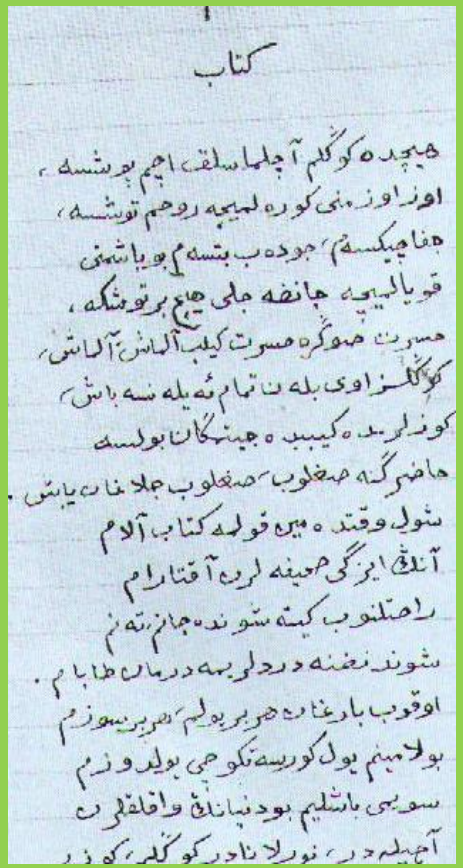 كتاب
هيچده كوڭلم آچلماسلق اچم پوشسه ،
اوز اوزمنى كوره لميچه روحم توشسه ،
جفا چيكسه م، جوده ب بتسه م بو باشمنى
قويالميچه جانغه جلى هيچ بر توشكه ،
حسرت صوڭره حسرت كيلب آلماش، آلماش،
كوڭلسز اوى بله ن تمام ئه يله نسه باش،
كوزلرمده كيبب ده جيتمگان بولسه
حاضر گنه صغلوب، صغلوب جلاغان ياش .
شول وقتده مين قولمه كتاب آلام
آنڭ ايزگى صحيفه لرن آقتارام
راحتلنوب كيته شونده جانم، ته نم
شوندن غنه دردلريمه درمان طابام .
اوقوب بارغان هر بر يولم، هر بر سوزم
بولا مينم يول كورسه تكوچى يولدوزم
سويمى باشليم بو دنيانڭ واقلقلرن
آچيله در، نورلانادر كوڭلم، كوزم